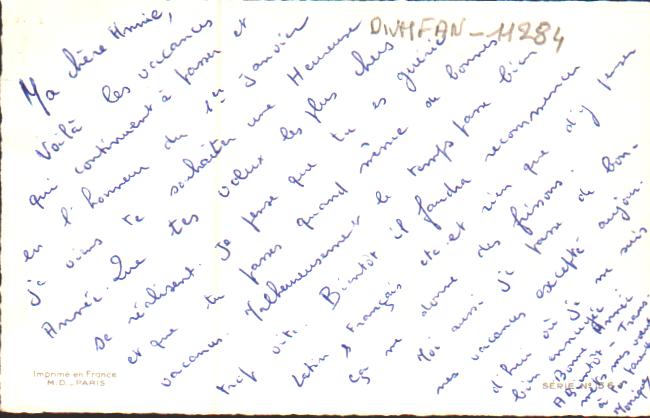 DIVHFAN-11284
Ma chère Annie,
Voilà les vacances
qui continuent à passer et
en l'honneur du 1er janvier
je viens te souhaiter une Heureuse
Année. Que tes voeux les plus chers
se réalisent. Je pense que tu es guérie
et que tu passes quand même de bonnes
vacances. Malheureusement le temps passe bien
trop vite. Bientôt il faudra recommencer
Latin & Français etc. et rien que d'y penser
ça me donne des frissons.
Moi aussi je passe de bon-
nes vacances excepté aujour-
d'hui où je me suis
bien ennuyée
Bonne Année
A Bientôt - Trans-
mets mes voeux
à
Imprimé en France
M.D. - PARIS
SÉRIE N° 156